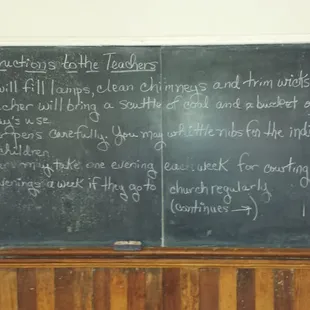 uctions to the Teachers
will fill lamps, clean chimneys and trim wicks
cher will bring a scuttle of coal and a bucket o
ay's use.
r pens carefully. You may whittle nibs for the indi
children
rs may take one evening each week for courting
evenings a week if they go to church regularly
(continues →)